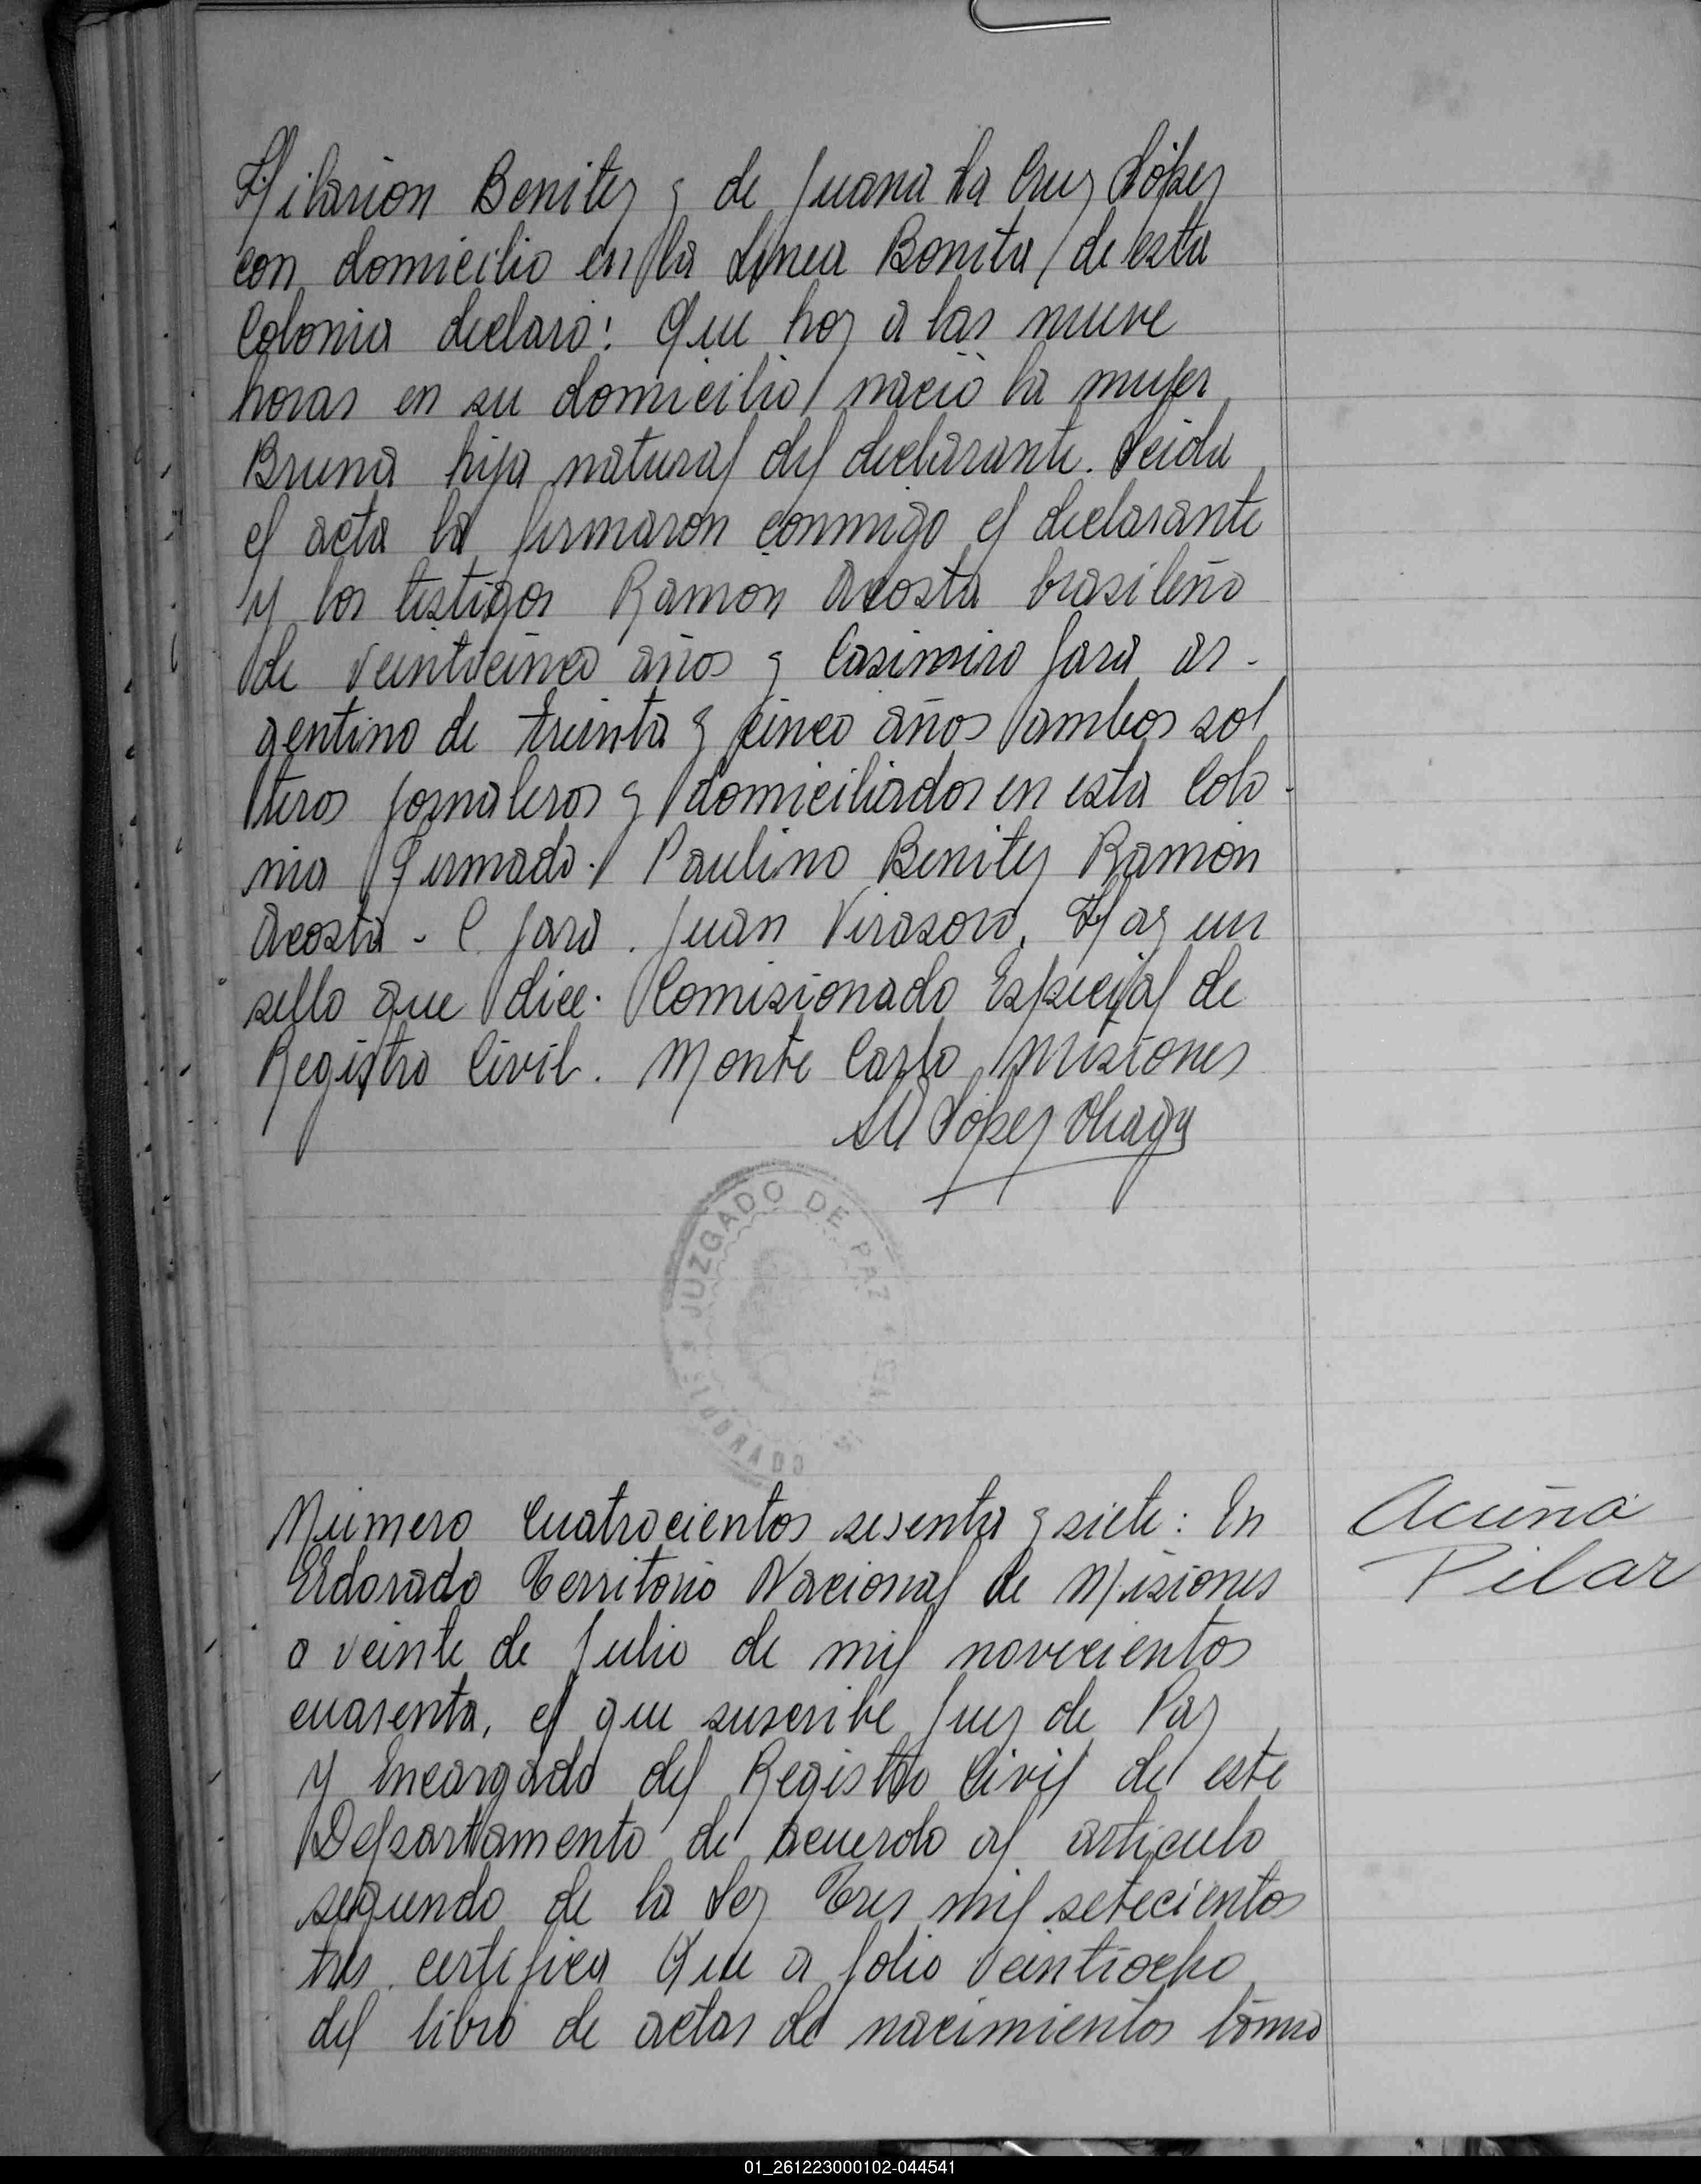 Hilarion Benitez y de Juana La Cruz López
con domicilio en la Linea Bonita de esta
Colonia declaró: Que hoy a las nueve
horas en su domicilio nació la mujer
Bruna hija natural del declarante. Leida
el acta la firmaron conmigo el declarante
y los testigos Ramón Acosta brasileño
de veinticinco años y Casimiro Jara ar-
gentino de treinta y cinco años ambos sol
teros jornaleros y domiciliados en esta Colo-
nia Firmado. Paulino Benitez Ramón
Acosta - C. Jara. Juan Virasoro. Hay un
sello que dice. Comisionado Especial de
Registro Civil. Monte Carlo Misiones
López
JUZGADO DE PAZ
ELDORADO
Número Cuatrocientos sesenta y siete: En
Eldorado Territorio Nacional de Misiones
a veinte de Julio de mil novecientos
cuarenta, el que suscribe Juez de Paz
y Encargado del Registro Civil de este
Departamento de acuerdo al articulo
segundo de la Ley Tres mil setecientos
tres certifica Que a folio veintiocho
del libro de actas de nacimientos tomo
Acuña
Pilar
01_261223000102-044541